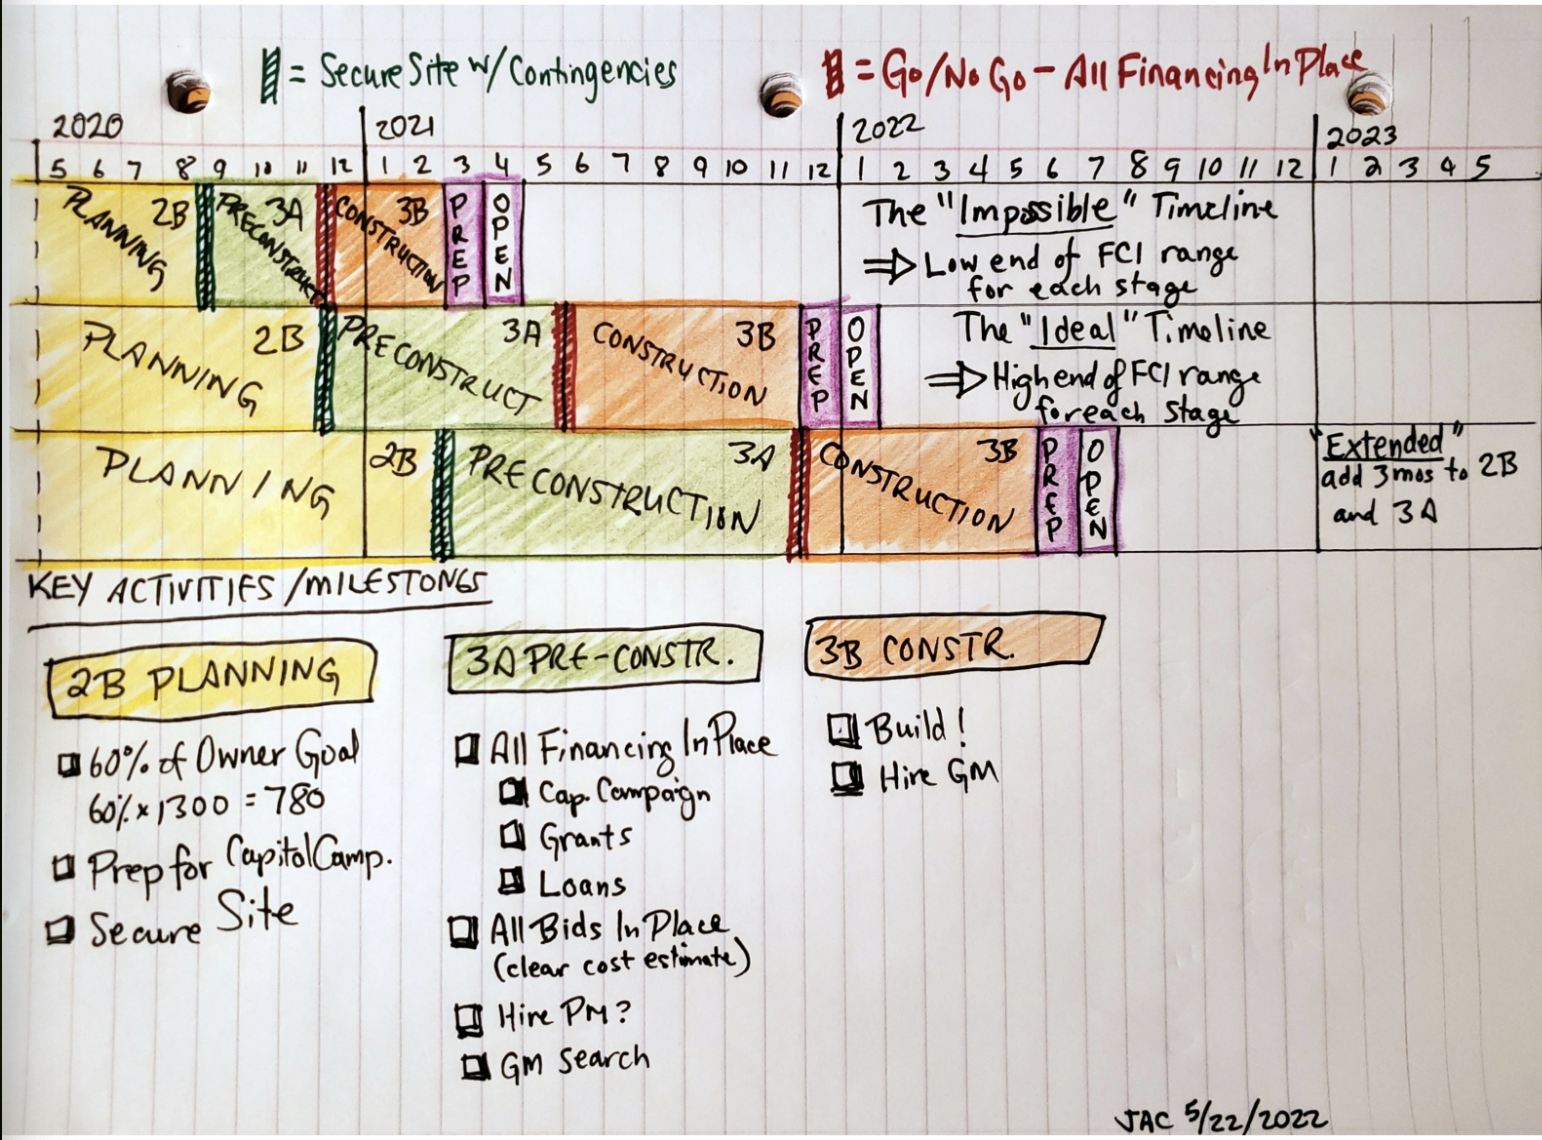 = Secure Site w/ Contingencies
= Go/No Go - All Financing In Place
2020 2021 2022 2023
5 6 7 8 9 10 11 12 1 2 3 4 5 6 7 8 9 10 11 12 1 2 3 4 5 6 7 8 9 10 11 12 1 2 3 4 5
PLANNING 2B
PRECONSTRUCT 3A
CONSTRUCTION 3B
PREP
OPEN
The "Impossible" Timeline
⇒ Low end of FCI range
for each stage
PLANNING 2B
PRECONSTRUCT 3A
CONSTRUCTION 3B
PREP
OPEN
The "Ideal" Timeline
⇒ High end of FCI range
for each stage
PLANNING 2B
PRECONSTRUCTION 3A
CONSTRUCTION 3B
PREP
OPEN
"Extended"
add 3 mos to 2B
and 3A
KEY ACTIVITIES/MILESTONES
2B PLANNING
60% of Owner Goal
60% x 1300 = 780
Prep for Capitol Camp.
Secure Site
3A PRE-CONSTR.
All Financing In Place
Cap. Campaign
Grants
Loans
All Bids In Place
(clear cost estimate)
Hire PM?
GM Search
3B CONSTR.
Build!
Hire GM
JAC 5/22/2022